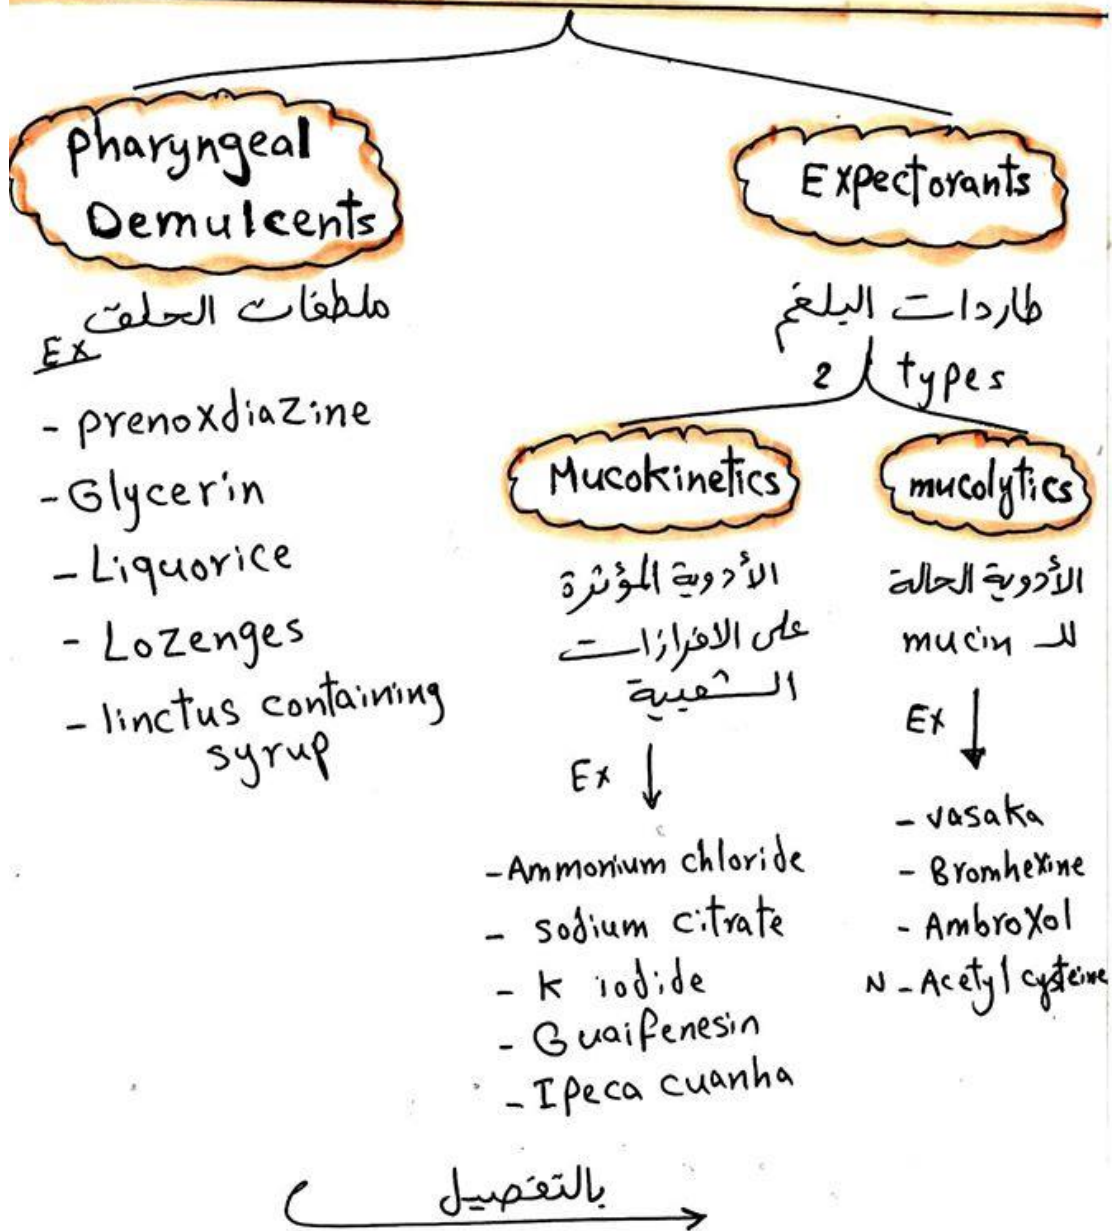 pharyngeal
Demulcents
ملطفات الحلق
Ex
- prenoxdiazine
- Glycerin
- Liquorice
- Lozenges
- linctus containing
syrup
Expectorants
طاردات البلغم
2 types
Mucokinetics
الأدوية المؤثرة
على الافرازات
الشعبية
Ex
- Ammonium chloride
- sodium citrate
- K iodide
- Guaifenesin
- Ipeca cuanha
mucolytics
الأدوية الحالة
للـ mucin
Ex
- vasaka
- Bromhexine
- Ambroxol
N - Acetyl cysteine
بالتفصيل